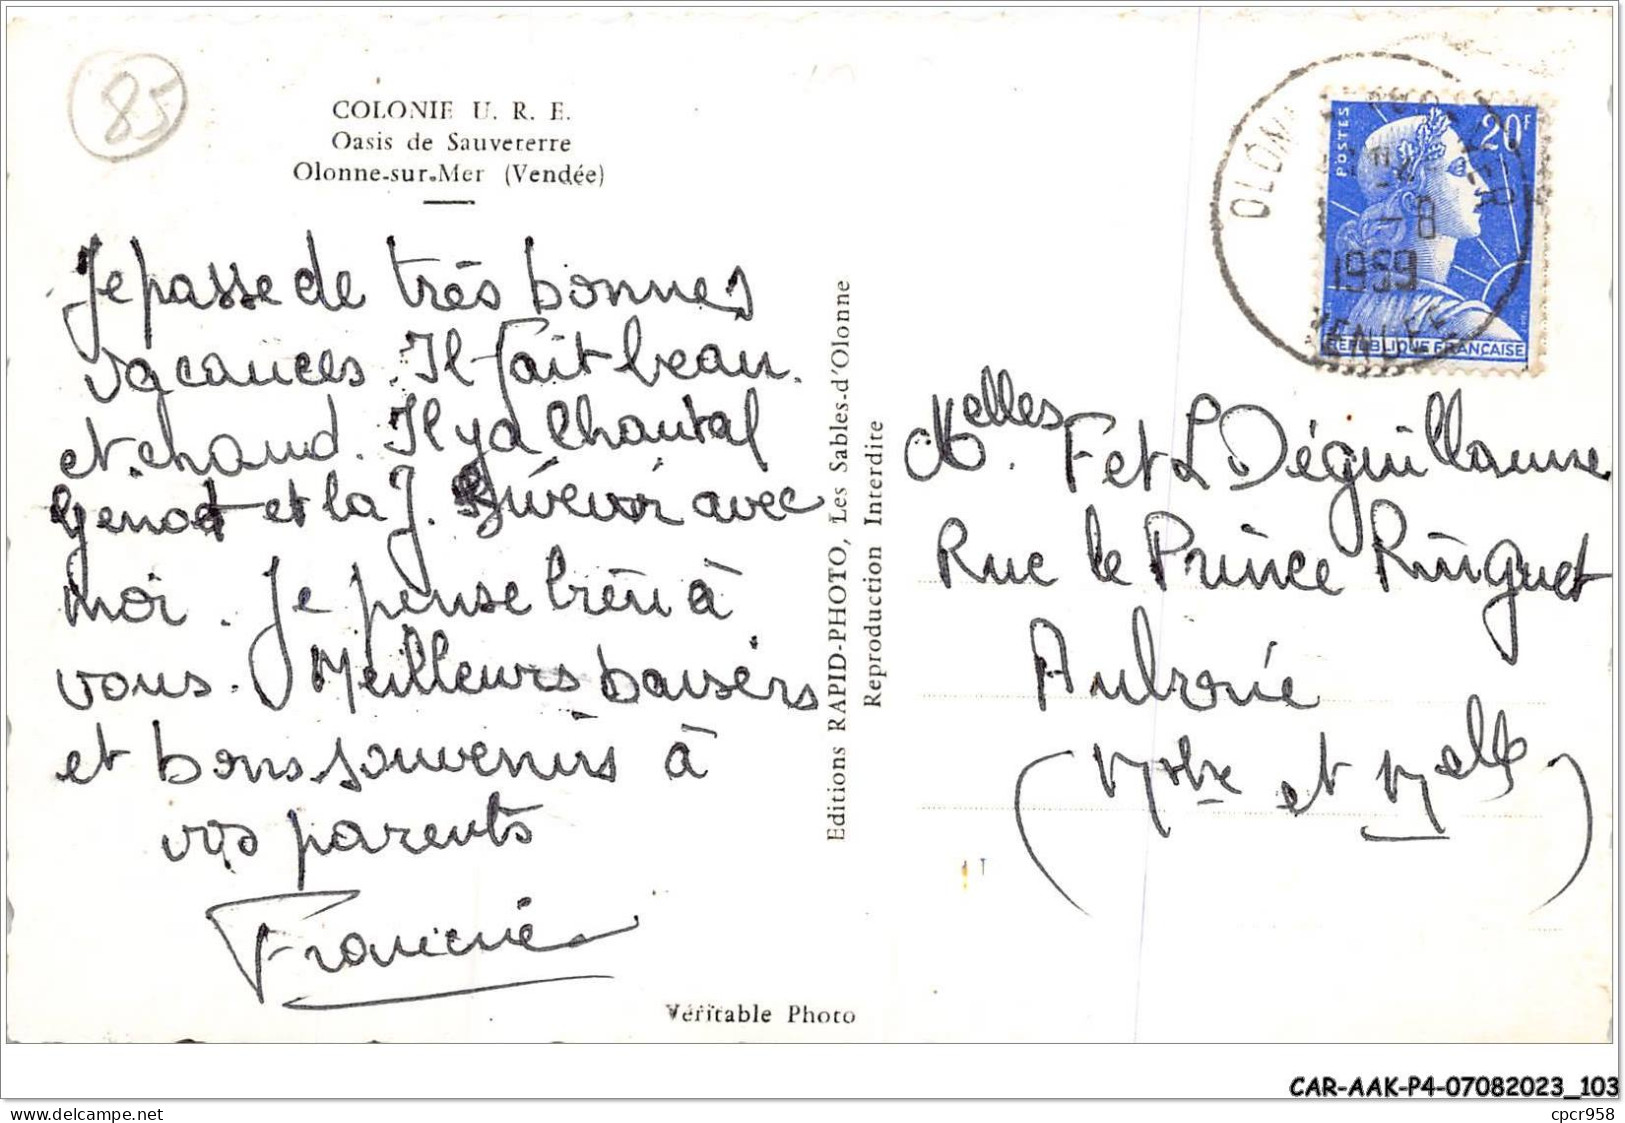 85
COLONIE U. R. E.
Oasis de Sauveterre
Olonne-sur-Mer (Vendée)
Je passe de très bonnes
vacances. Il fait beau.
et chaud. Il y a Chantal
et la J. avec
moi. Je pense bien à
vous. Meilleurs baisers
et bons souvenirs à
vos parents
Francine
Editions RAPID-PHOTO, Les Sables-d'Olonne
Reproduction Interdite
Véritable Photo
POSTES
20F
-8
1959
VENDEE
REPUBLIQUE FRANCAISE
Melles. F et L Déguillaume
Rue le Prince Ringuet
( et Melle )
CAR-AAK-P4-07082023_103
www.delcampe.net
cpcr958